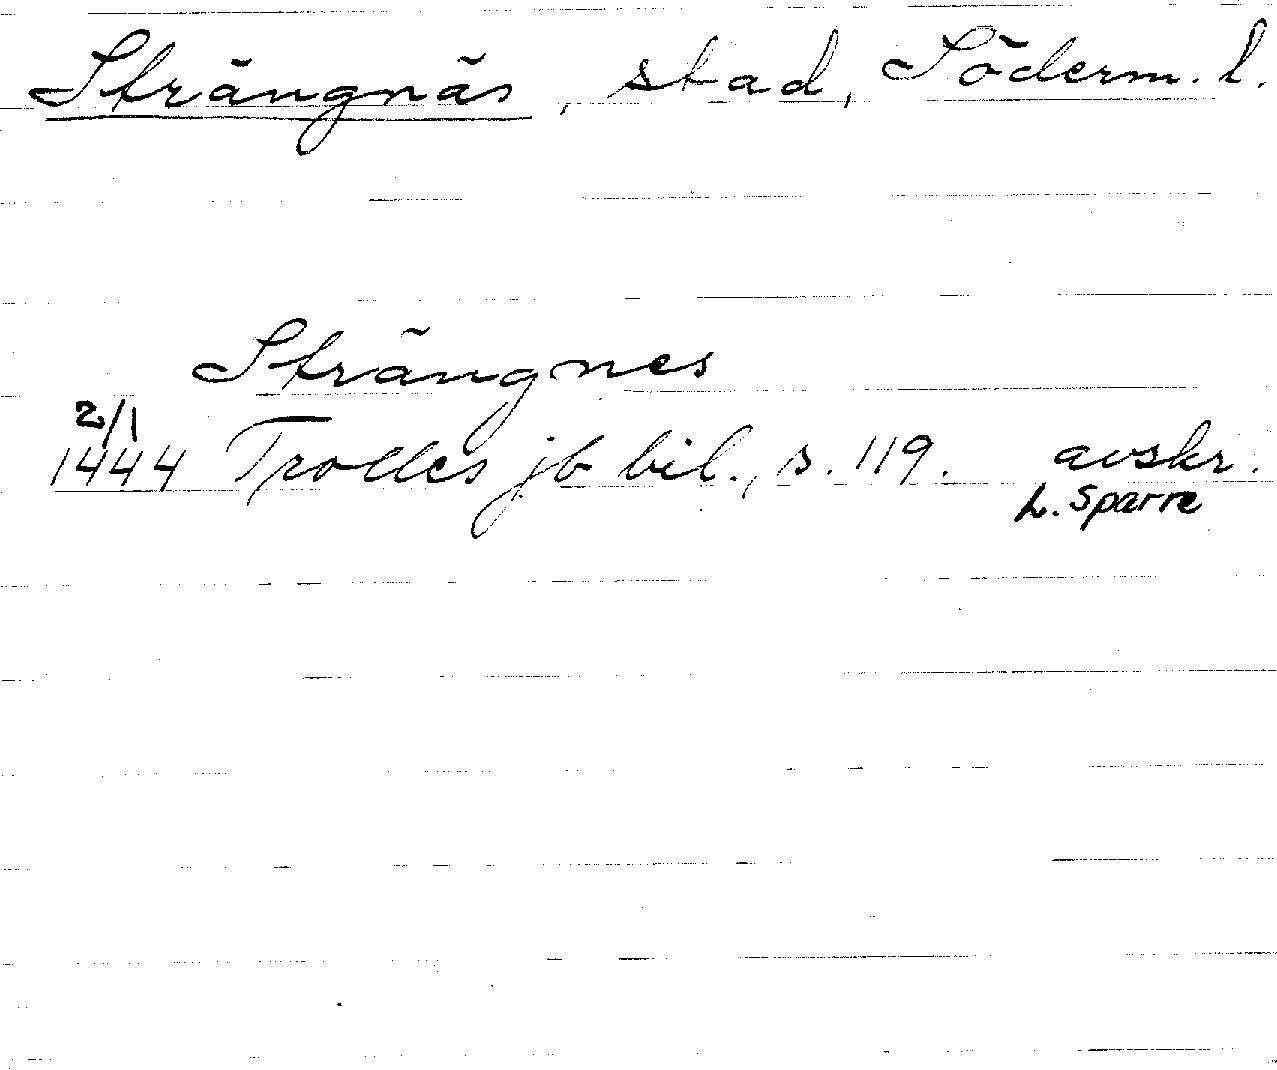 Strängnäs, stad, Söderm. l.
Strängnes
2/1
1444 Trolles jb bil., s. 119. avskr.
L. Sparre